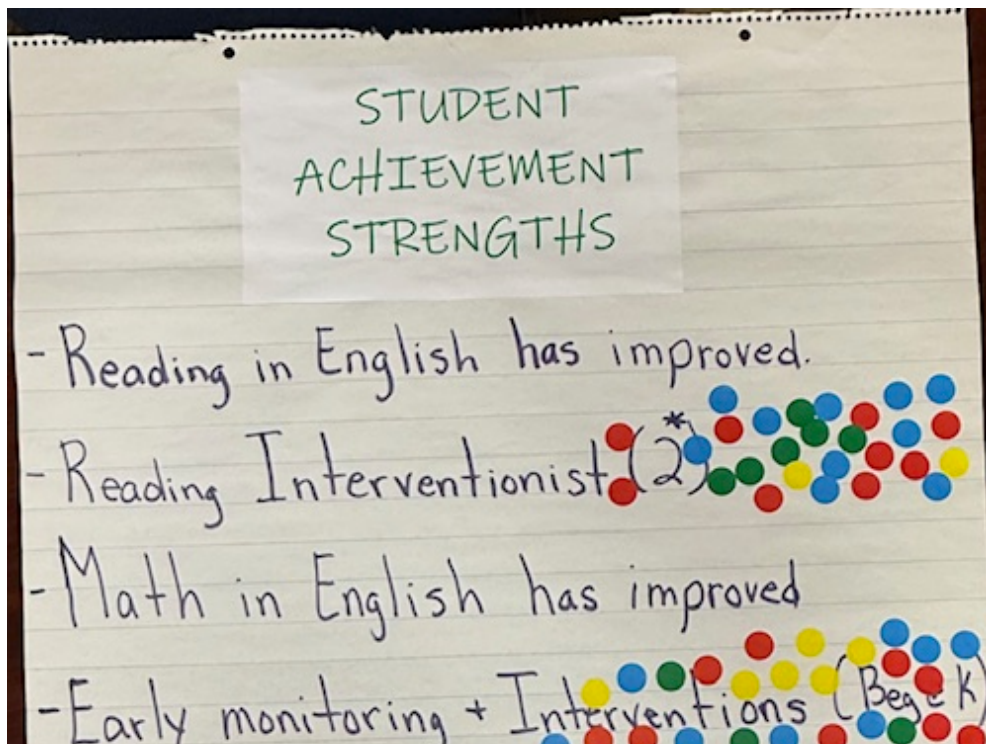 STUDENT
ACHIEVEMENT
STRENGTHS
- Reading in English has improved.
- Reading Interventionist (2*)
- Math in English has improved
- Early monitoring + Interventions (Beg